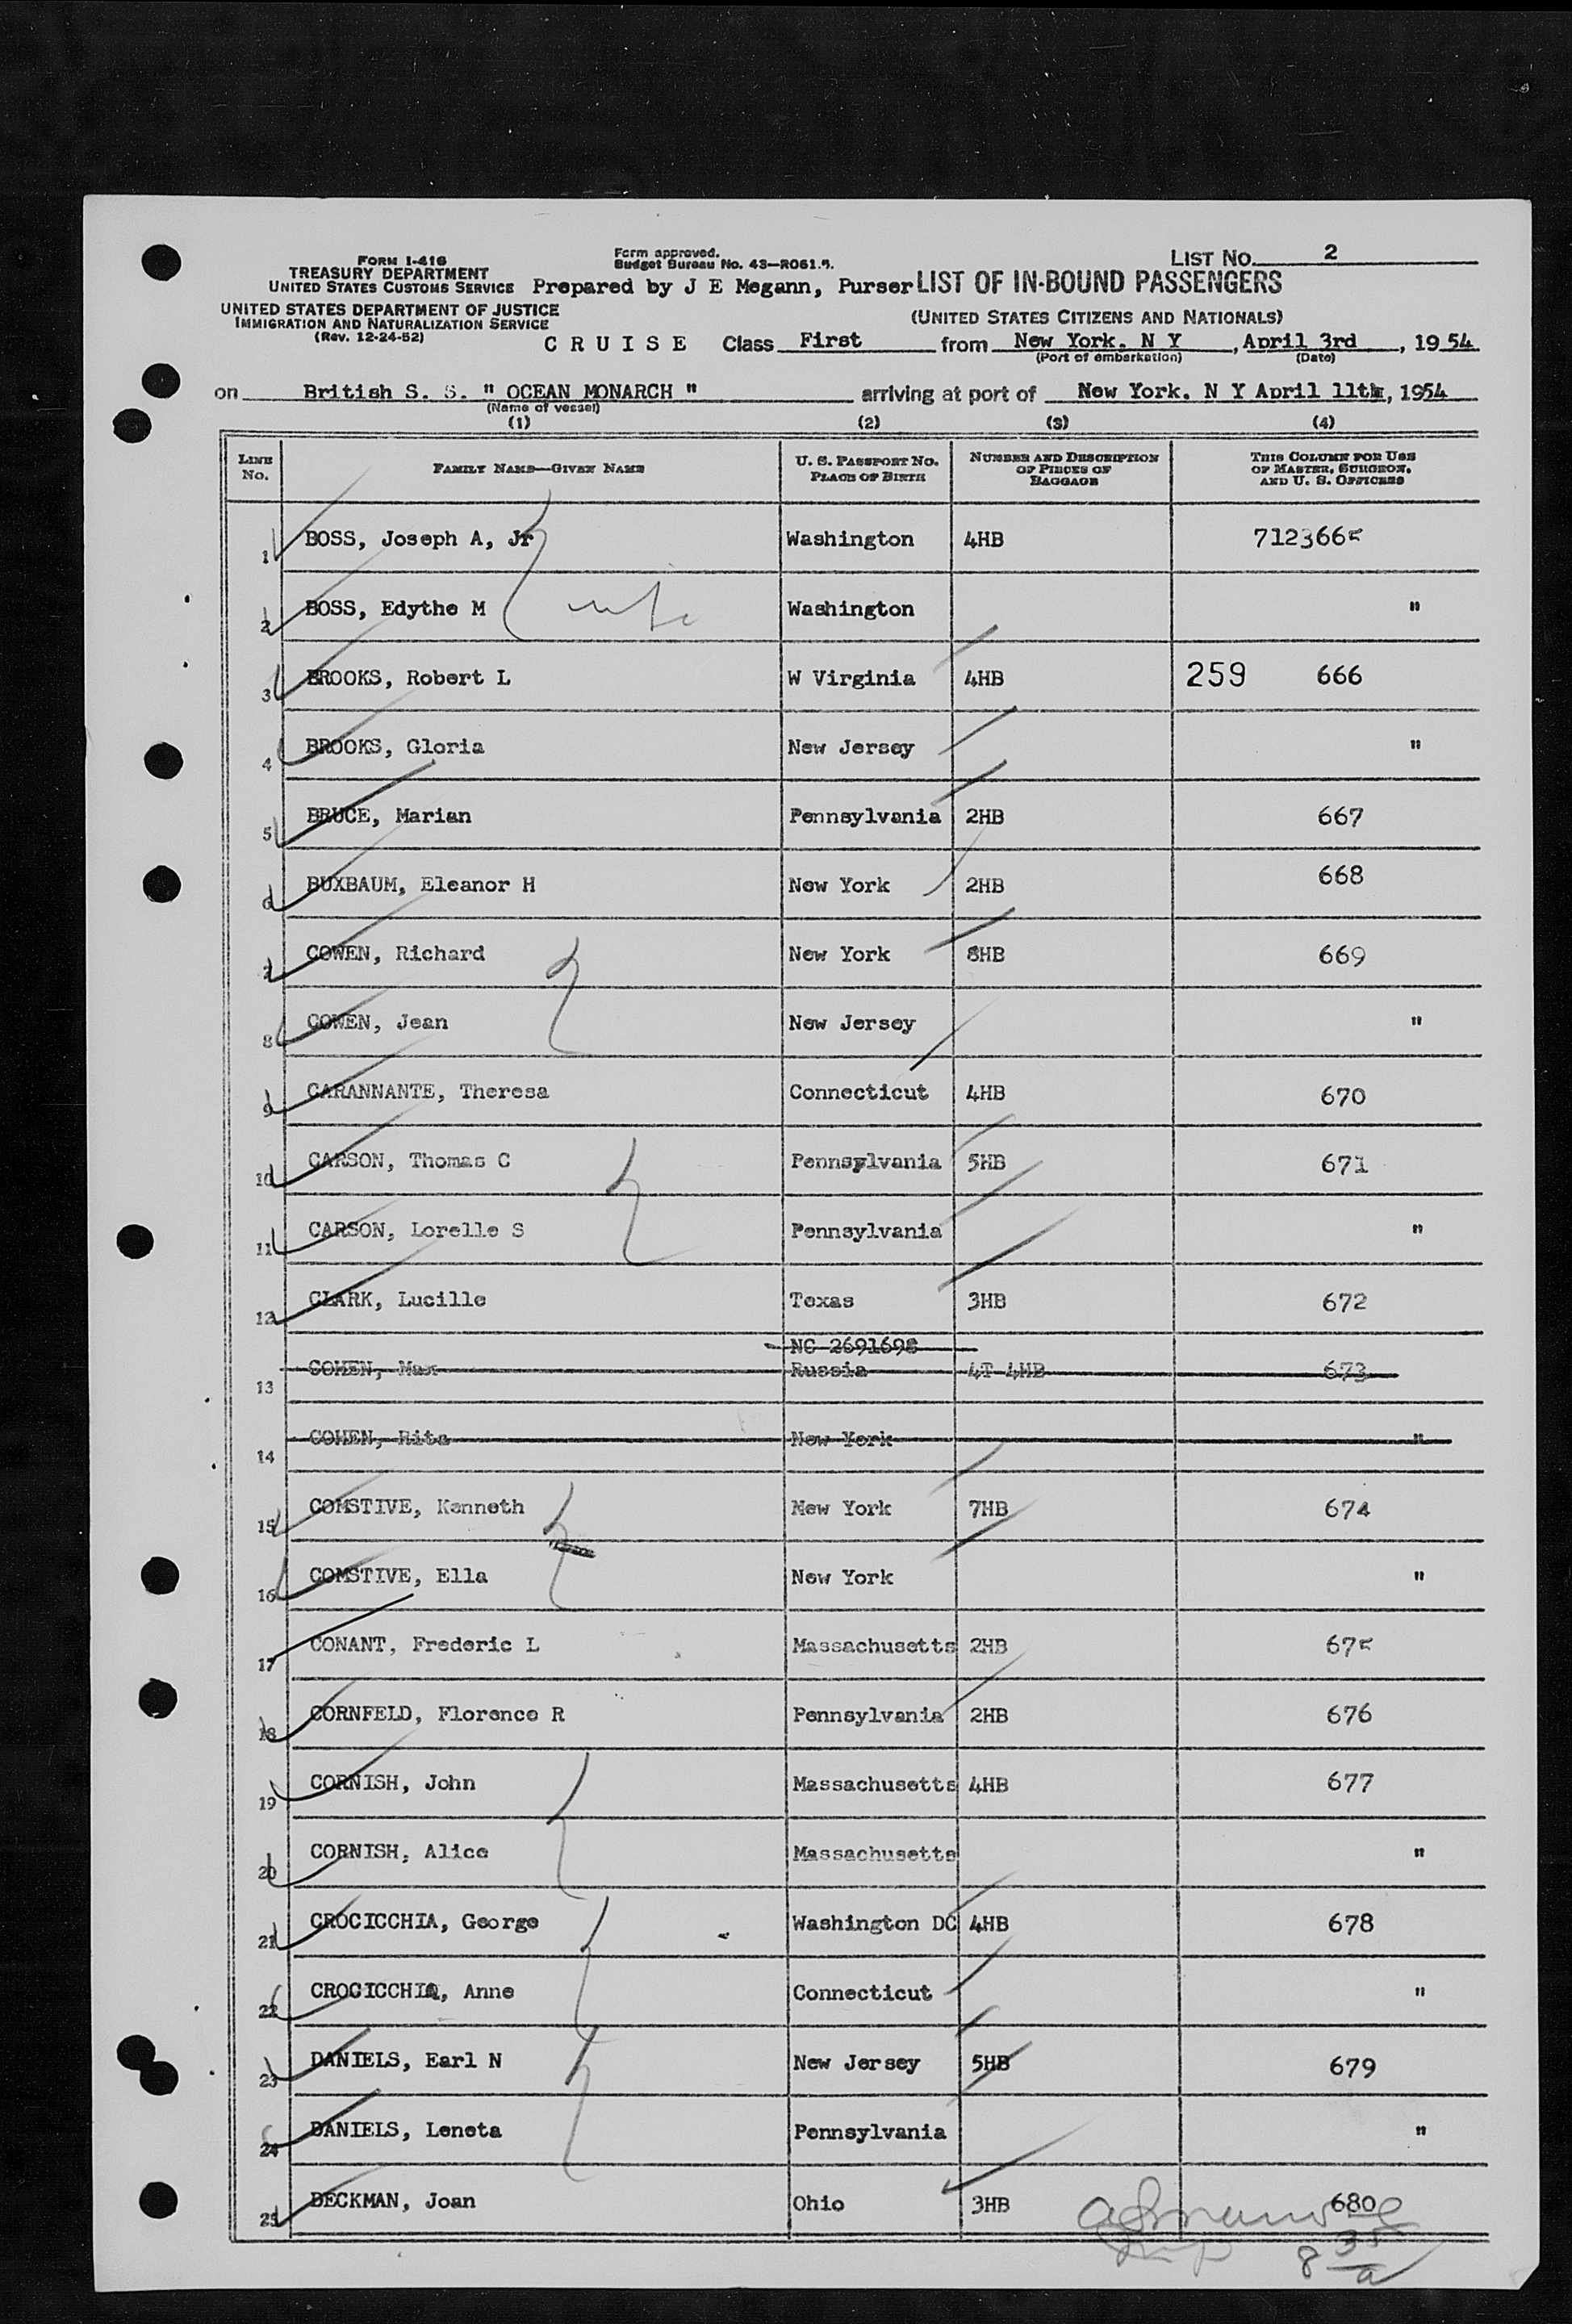 FORM I-416
TREASURY DEPARTMENT
UNITED STATES CUSTOMS SERVICE
UNITED STATES DEPARTMENT OF JUSTICE
IMMIGRATION AND NATURALIZATION SERVICE
(Rev. 12-24-52)
Form approved.
Budget Bureau No. 43—R061.5.
LIST NO. 2
Prepared by J E Megann, Purser LIST OF IN-BOUND PASSENGERS
(UNITED STATES CITIZENS AND NATIONALS)
C R U I S E Class First from New York. N Y, April 3rd, 1954
(Port of embarkation) (Date)
on British S. S. " OCEAN MONARCH " arriving at port of New York. N Y April 11th, 1954
(Name of vessel)
(1) (2) (3) (4)
LINE No. FAMILY NAME—GIVEN NAME U. S. PASSPORT NO. PLACE OF BIRTH NUMBER AND DESCRIPTION OF PIECES OF BAGGAGE THIS COLUMN FOR USE OF MASTER, SURGEON, AND U. S. OFFICERS
1 BOSS, Joseph A, Jr Washington 4HB 7123665
2 BOSS, Edythe M Washington "
3 BROOKS, Robert L W Virginia 4HB 259 666
4 BROOKS, Gloria New Jersey "
5 BRUCE, Marian Pennsylvania 2HB 667
6 BUXBAUM, Eleanor H New York 2HB 668
7 COWEN, Richard New York 8HB 669
8 COWEN, Jean New Jersey "
9 CARANNANTE, Theresa Connecticut 4HB 670
10 CARSON, Thomas C Pennsylvania 5HB 671
11 CARSON, Lorelle S Pennsylvania "
12 CLARK, Lucille Texas 3HB 672
NC 2691698
13 COHEN, Max Russia 4T 4HB 673
14 COHEN, Rita New York "
15 COMSTIVE, Kenneth New York 7HB 674
16 COMSTIVE, Ella New York "
17 CONANT, Frederic L Massachusetts 2HB 675
18 CORNFELD, Florence R Pennsylvania 2HB 676
19 CORNISH, John Massachusetts 4HB 677
20 CORNISH, Alice Massachusetts "
21 CROCICCHIA, George Washington DC 4HB 678
22 CROCICCHIA, Anne Connecticut "
23 DANIELS, Earl N New Jersey 5HB 679
24 DANIELS, Leneta Pennsylvania "
25 DECKMAN, Joan Ohio 3HB 680
8 35
a